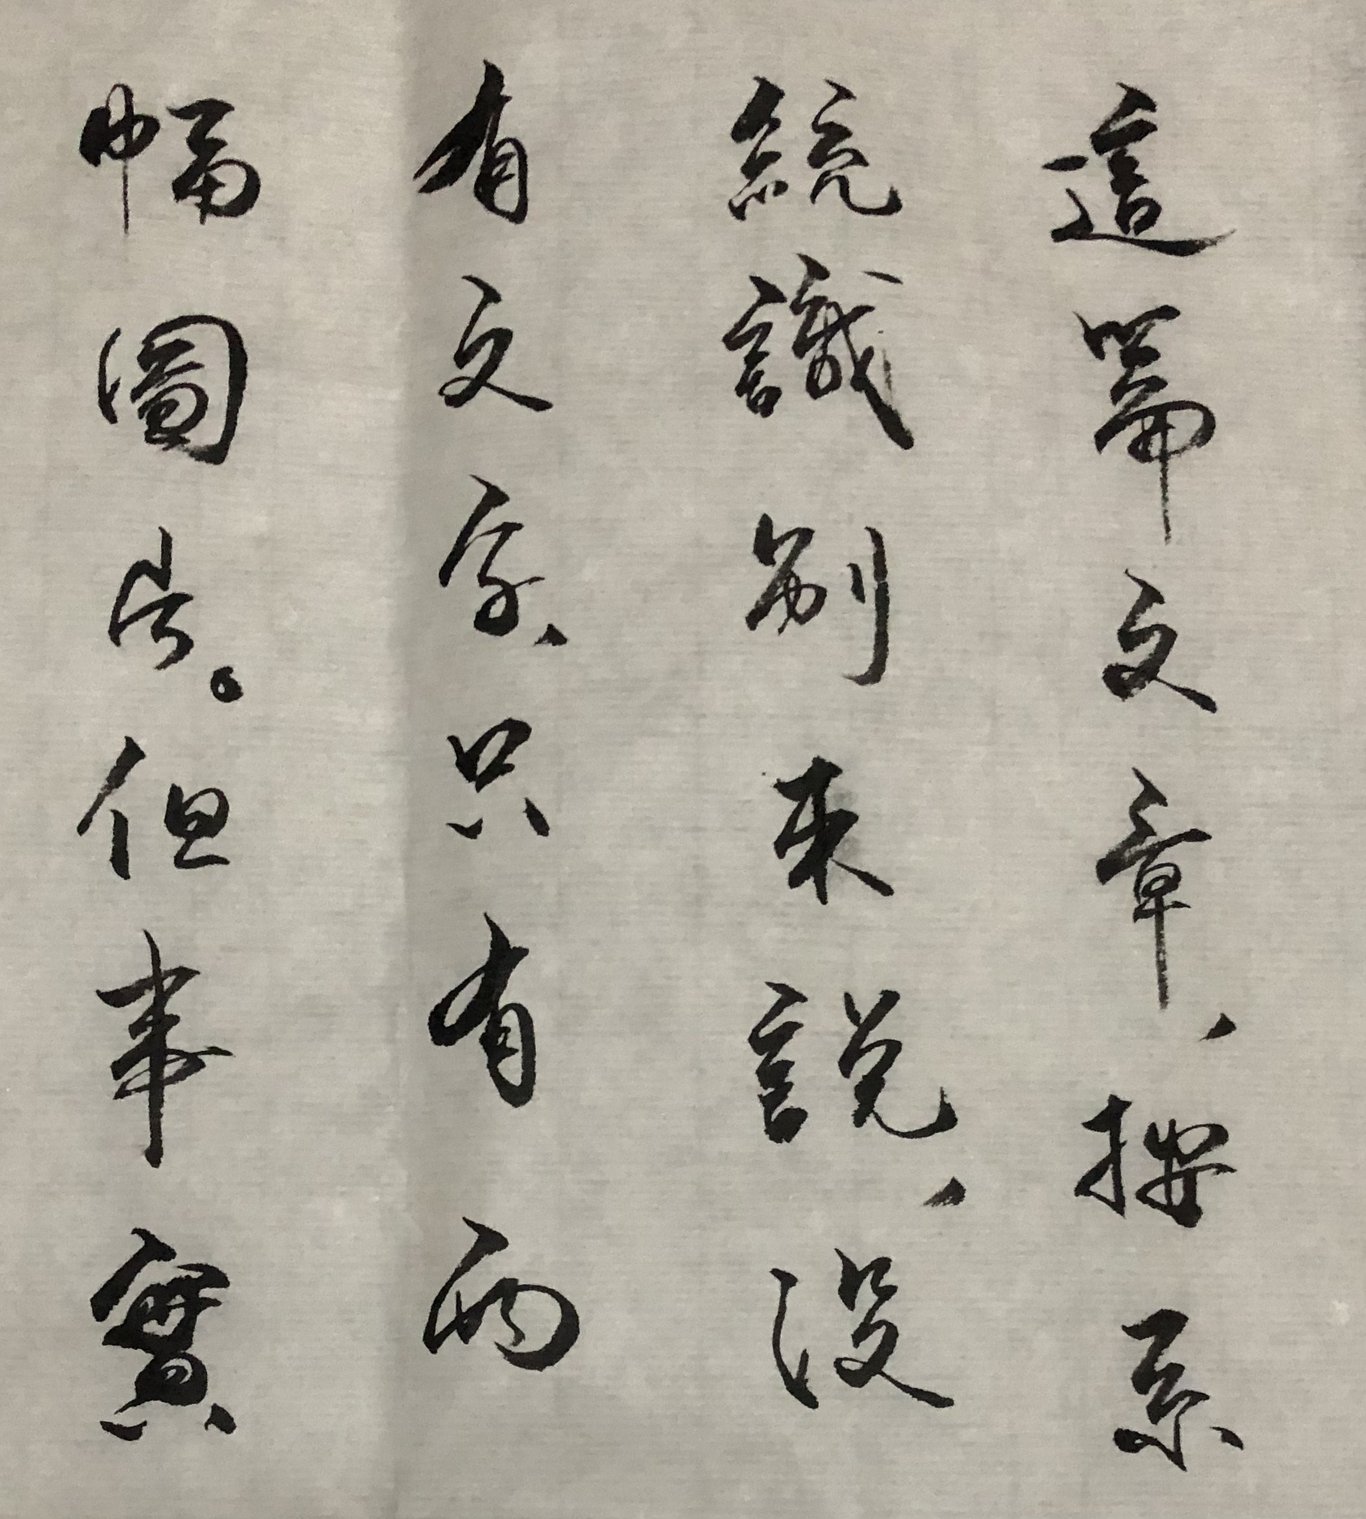 這篇文章，按系
統識別來說，没
有文字，只有兩
幅圖片。但事實